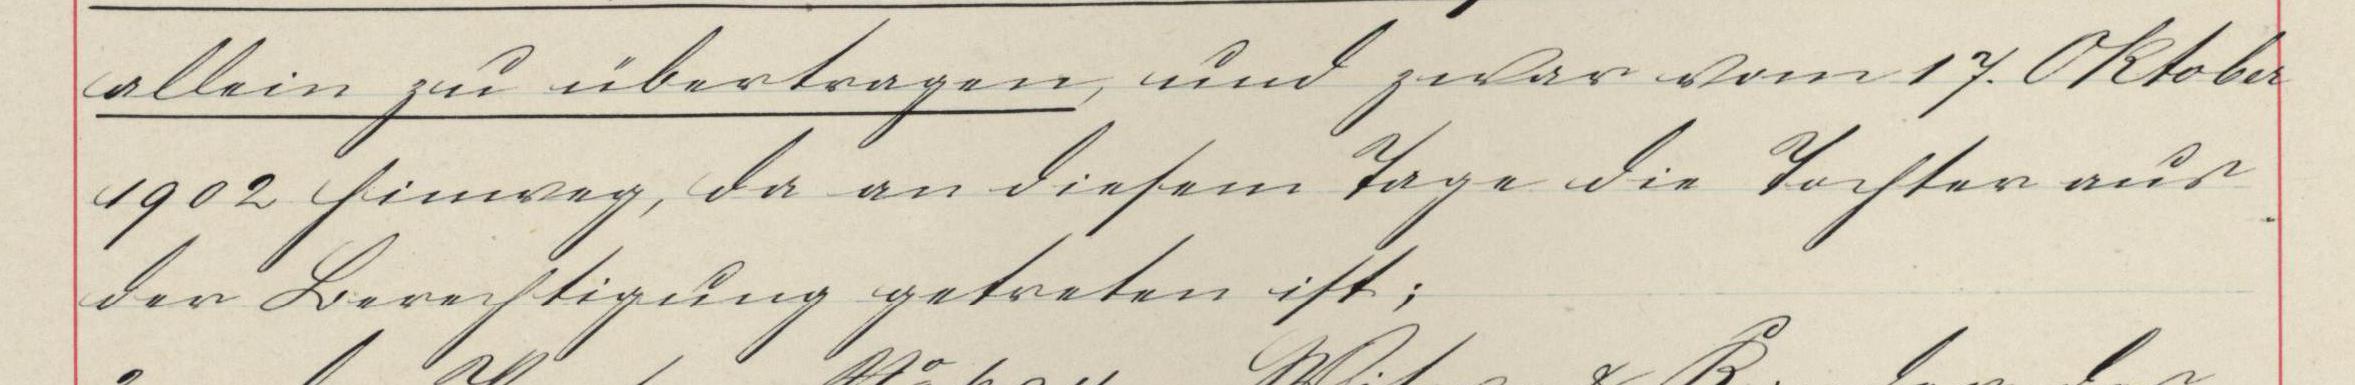 allein zu übertragen, und zwar vom 17. Oktober
1902 hinweg, da an diesem Tage die Tochter aus
der Berechtigung getreten ist;